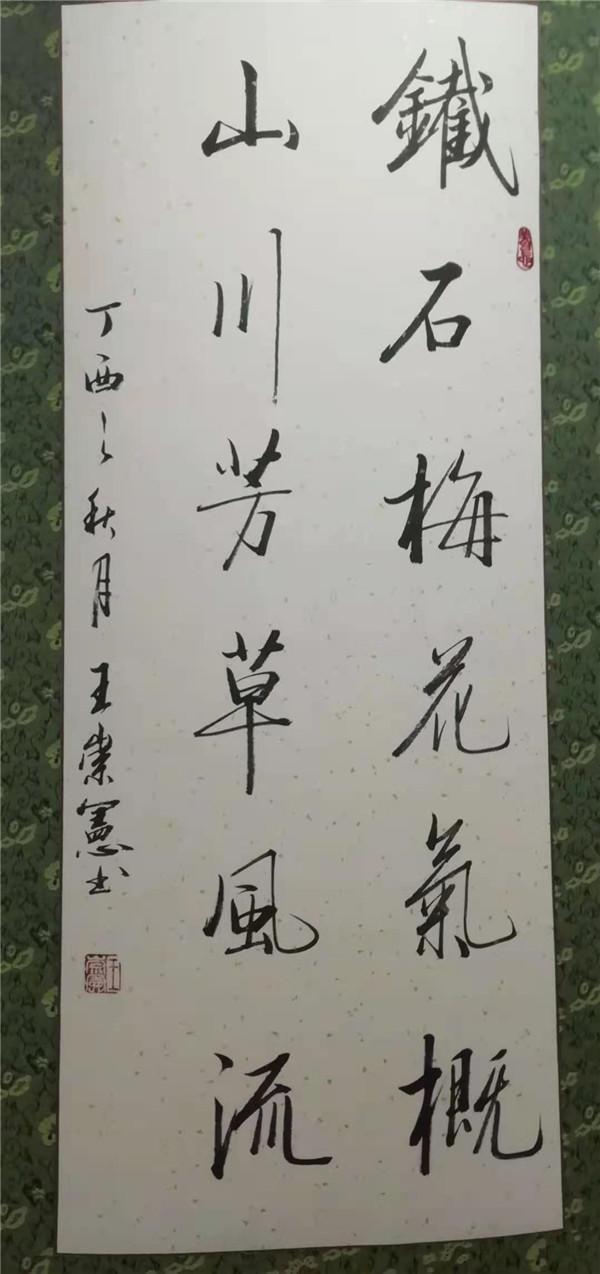 鐵石梅花氣概
山川芳草風流
丁酉之秋月王崇憲书